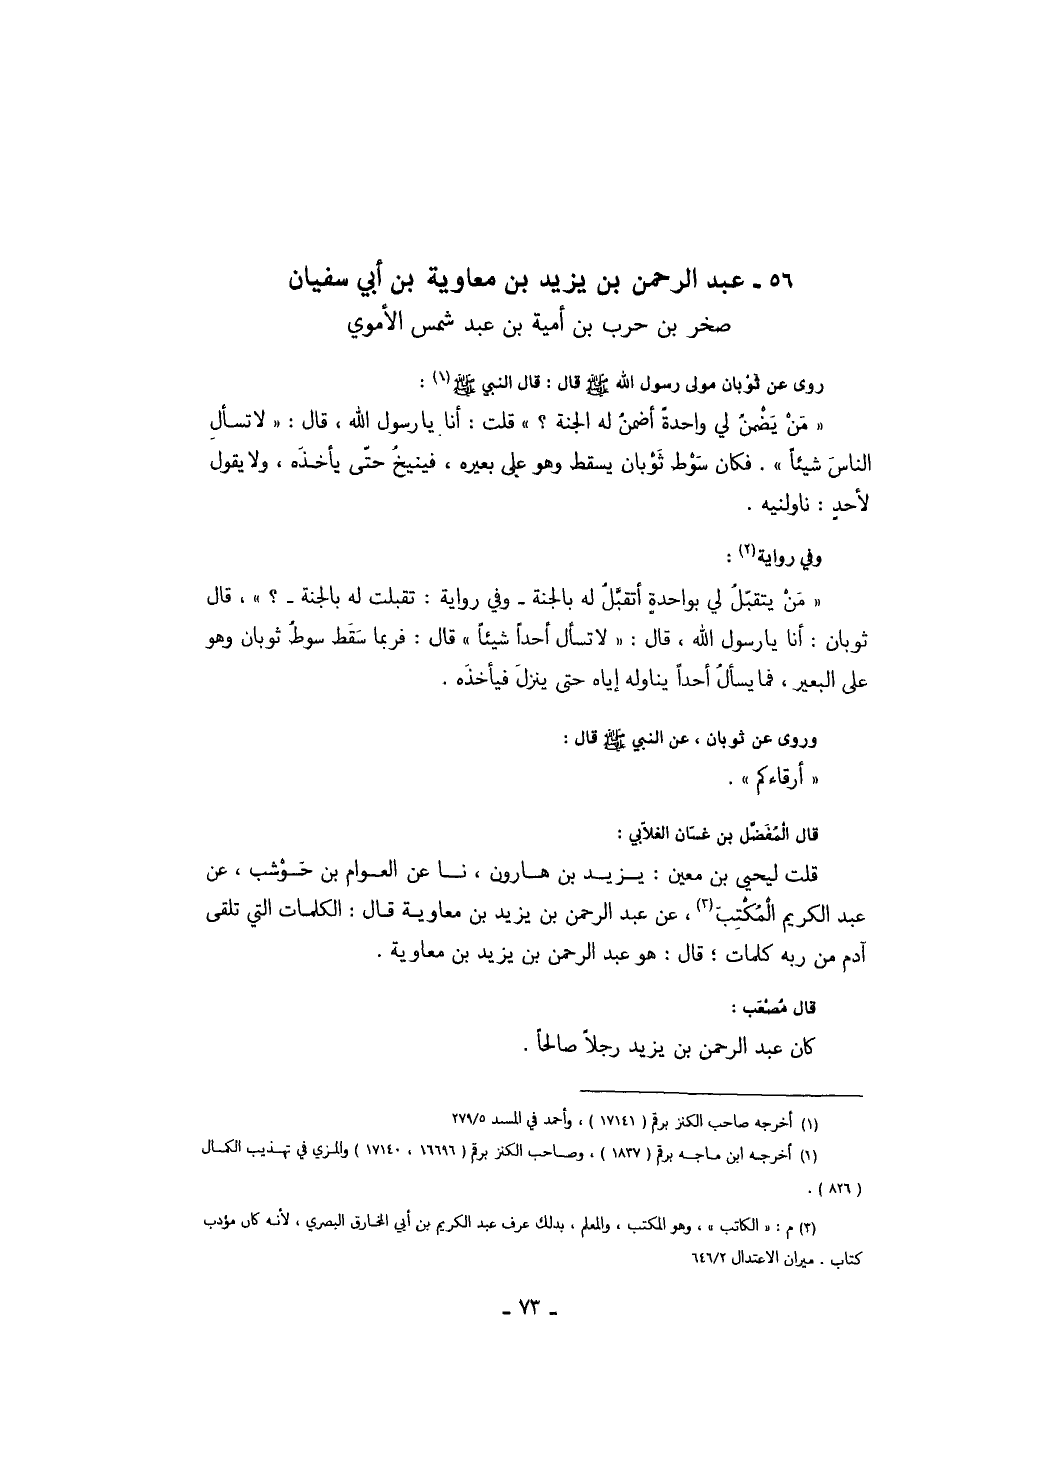 ٥٦ ـ عبد الرحمن بن يزيد بن معاوية بن أبي سفيان
صخر بن حرب بن أمية بن عبد شمس الأموي
روى عن ثَوْبان مولى رسول الله ﷺ قال : قال النبي ﷺ(١) :
« مَنْ يَضْمنُ لي واحدةً أضمنُ له الجنة ؟ » قلت : أنا يارسول الله ، قال : « لاتسألِ
الناسَ شيئاً » . فكان سَوْط ثَوْبان يسقط وهو على بعيره ، فينيخُ حتّى يأخذَه ، ولايقول
لأحدٍ : ناولنيه .
وفي رواية(٢) :
« مَنْ يتقبّلُ لي بواحدةٍ أتقبَّلُ له بالجنة ـ وفي رواية : تقبلت له بالجنة ـ ؟ » ، قال
ثوبان : أنا يارسول الله ، قال : « لاتسأل أحداً شيئاً » قال : فربما سَقَط سوطُ ثوبان وهو
على البعير ، فمايسألُ أحداً يناوله إياه حتى ينزلَ فيأخذَه .
وروى عن ثوبان ، عن النبي ﷺ قال :
« أرقاءكم » .
قال الْمُفَضَّل بن غسّان الغلاّبي :
قلت ليحيى بن معين : يـزيـد بن هـارون ، نـا عن العـوام بن حَـوْشب ، عن
عبد الكريم الْمُكْتِبَ(٣) ، عن عبد الرحمن بن يزيد بن معاويـة قـال : الكلمات التي تلقى
آدم من ربه كلمات ؛ قال : هو عبد الرحمن بن يزيد بن معاوية .
قال مُصْعَب :
كان عبد الرحمن بن يزيد رجلاً صالحاً .
(١) أخرجه صاحب الكنز برقم ( ١٧١٤١ ) ، وأحمد في المسد ٢٧٩/٥
(١) أخرجـه ابن مـاجـه برقم ( ١٨٣٧ ) ، وصـاحب الكنز برقم ( ١٦٦٩٦ ، ١٧١٤٠ ) والمـزي في تهـذيب الكمال
( ٨٢٦ ) .
(٣) م : « الكاتب » ، وهو المكتب ، والمعلم ، بدلك عرف عبد الكريم بن أبي المخارق البصري ، لأنـه كان مؤدب
كتاب . ميران الاعتدال ٦٤٦/٢
ـ ٧٣ ـ